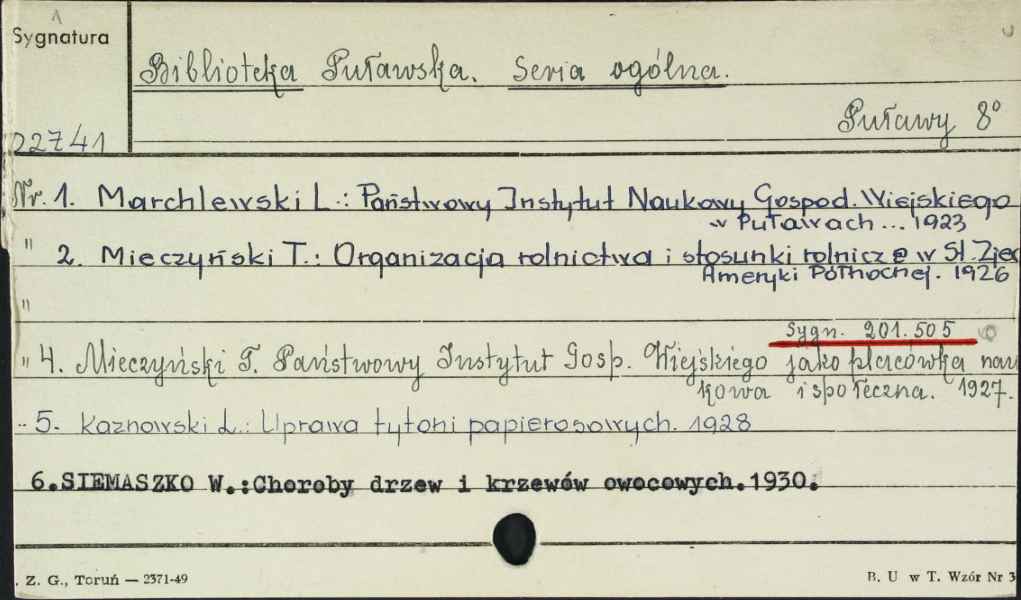 Sygnatura
Biblioteka Puławska. Seria ogólna.
Puławy 8°
22741
Nr. 1. Marchlewski L.: Państwowy Instytut Naukowy Gospod. Wiejskiego
w Puławach... 1923
" 2. Mieczyński T.: Organizacja rolnictwa i stosunki rolnicze w St. Zjed
Ameryki Północnej. 1926
"
Sygn. 201.505
" 4. Mieczyński T. Państwowy Instytut Gosp. Wiejskiego jako placówka nau
kowa i społeczna. 1927.
" 5. Kaznowski L.: Uprawa tytoni papierosowych. 1928
6.SIEMASZKO W.:Choroby drzew i krzewów owocowych.1930.
. Z. G., Toruń — 2371-49
B. U w T. Wzór Nr 3